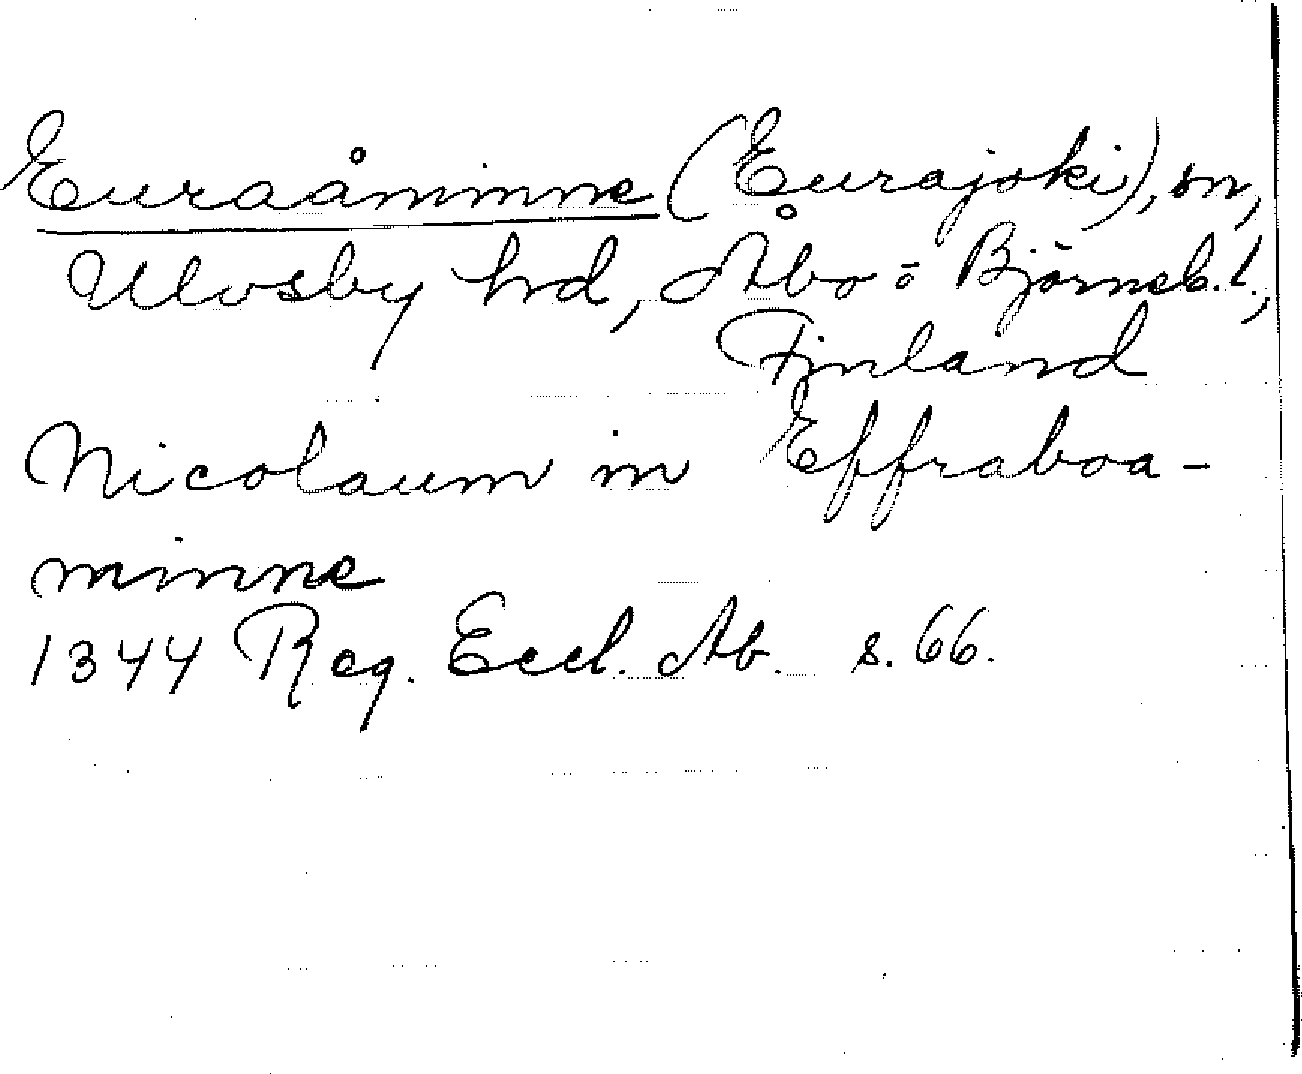 Euraåminne (Eurajoki), sn,
Ulvsby hd, Åbo o Björneb. l.,
Finland
Nicolaum in Effraboa-
minne
1344 Reg. Eccl. Ab. s. 66.